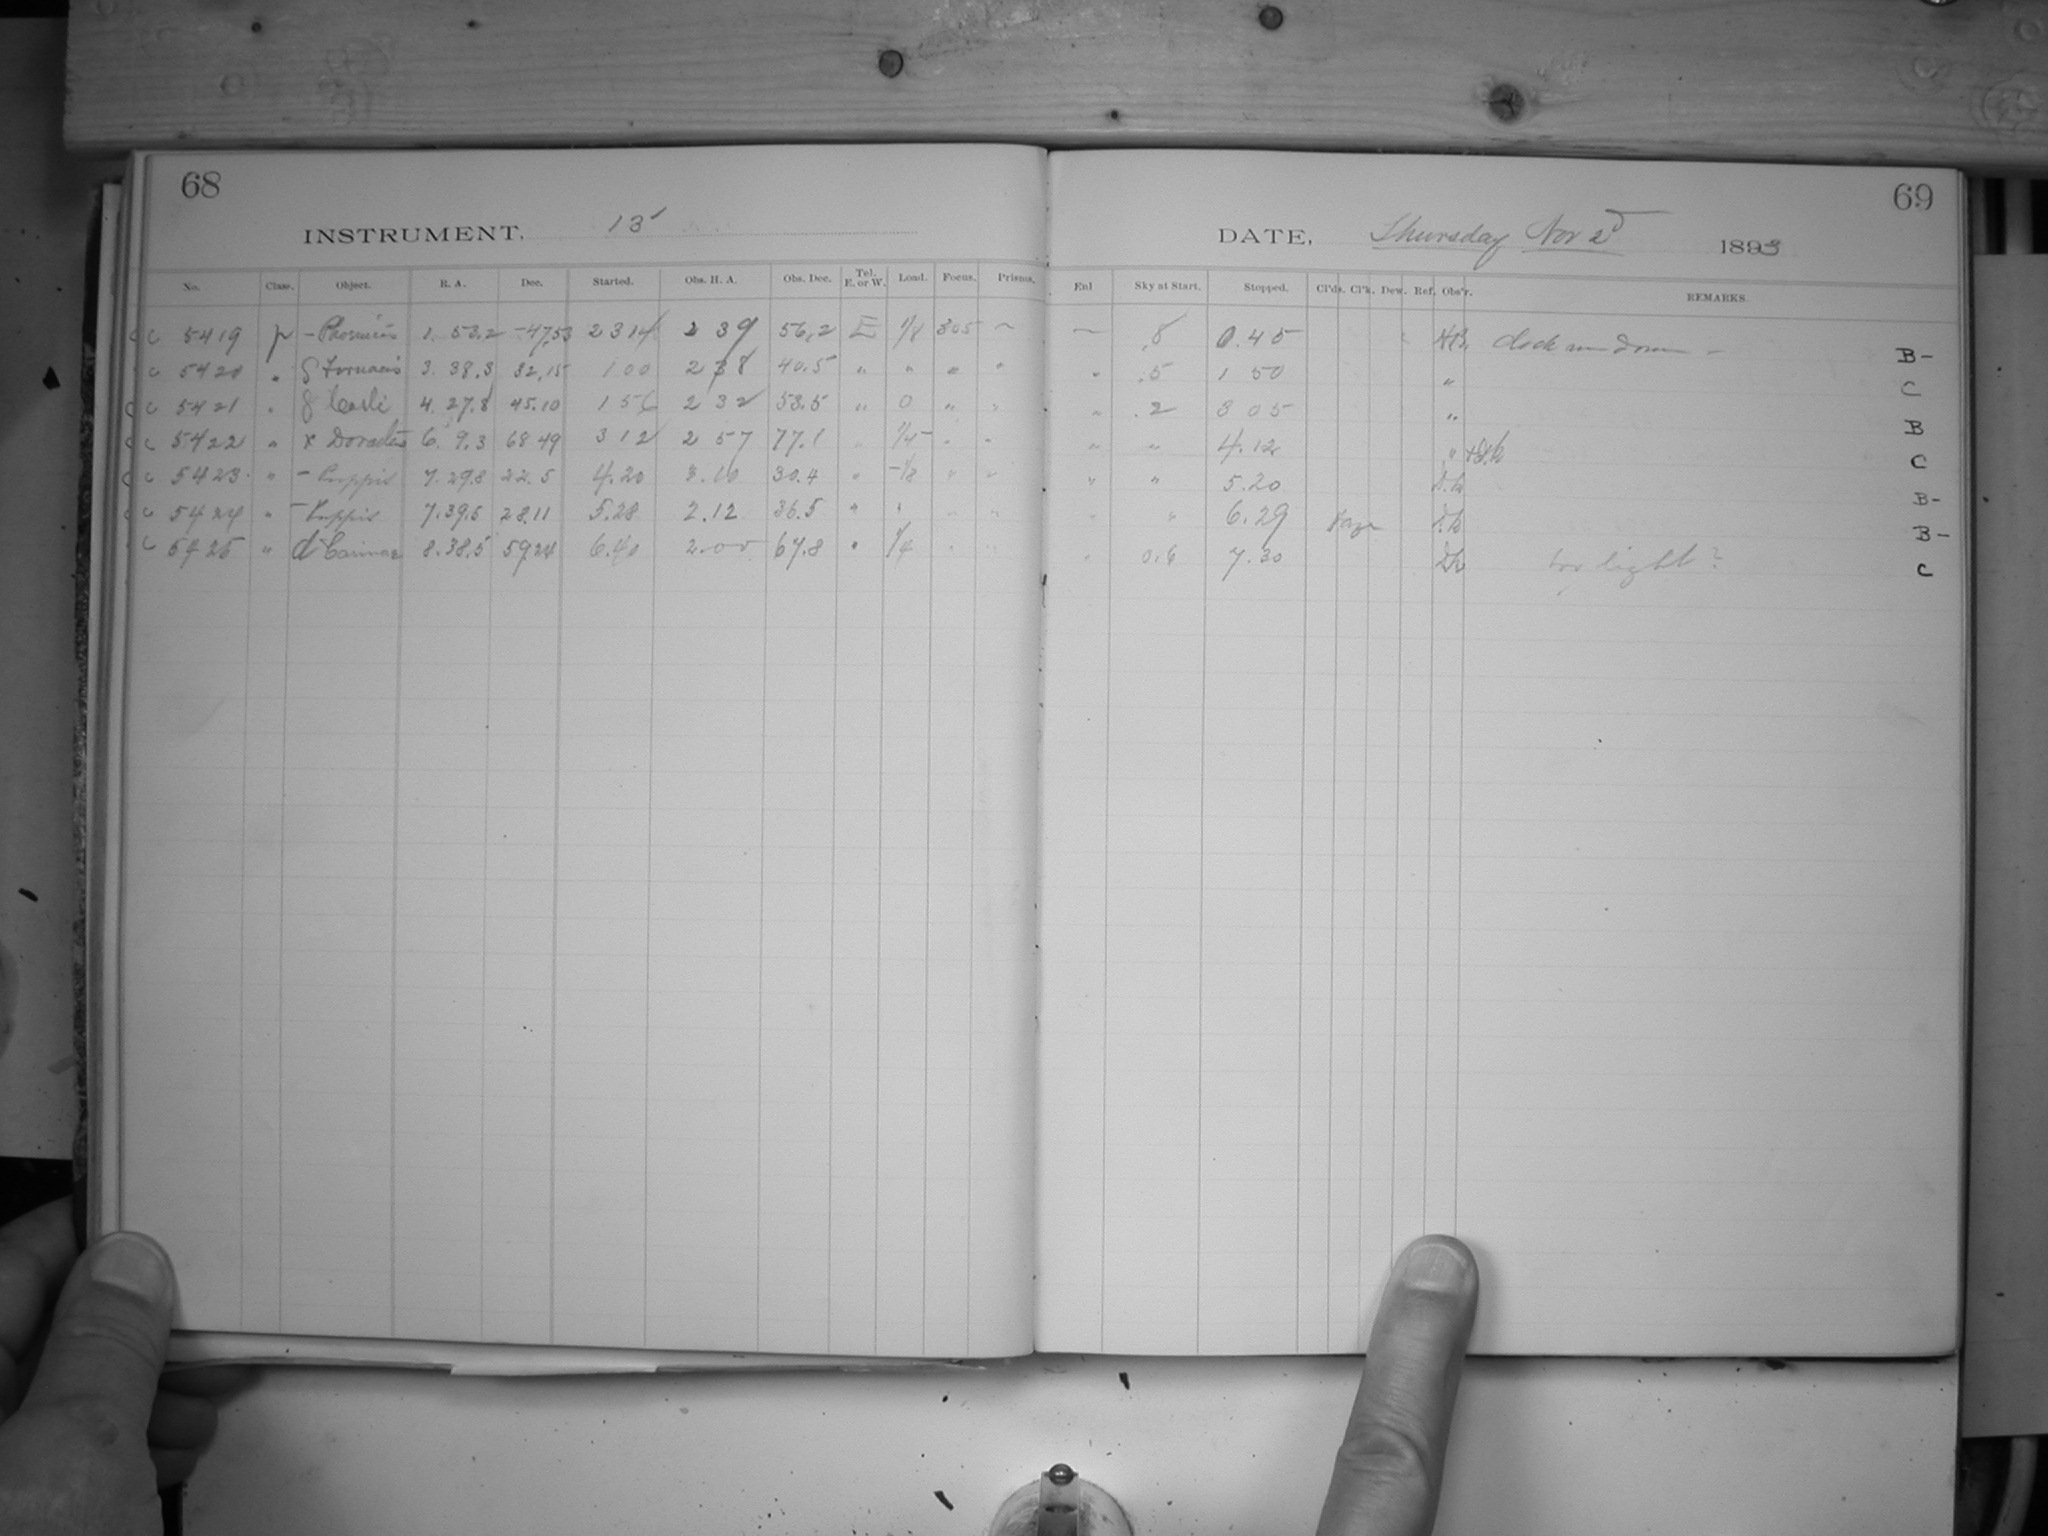 68
INSTRUMENT, 13
No. Class. Object. R. A. Dec. Started. Obs. H. A. Obs. Dec. Tel. E. or W. Load. Focus. Prisms.
c 5419 p – Phoenicis 1. 53.2 –47,53 23 14 2 39 56,2 E 1/8 305 ~
c 5420 " Fornacis 3. 38.3 32,15 1 00 2 38 40.5 " " " "
c 5421 " Caeli 4. 27.8 45.10 1 56 2 32 53.5 " 0 " "
c 5422 " Doradus 6. 9.3 68 49 3 12 2 57 77.1 " " "
c 5423 " – Puppis 7. 29.8 22.5 4.20 3.10 30.4 " –1/8 " "
c 5424 " – Puppis 7.39.5 28.11 5.28 2.12 36.5 " " " "
c 5425 " d Carinae 8.38.5 5924 6.40 2.00 67.8 " 1/4 " "
69
DATE, Thursday Nov 2d 1893
Enl Sky at Start. Stopped. Cl'ds. Cl'k. Dew. Ref. Obs'r. REMARKS.
~ .8 0.45 clock run down – B–
" .5 1 50 " C
" .2 3 05 " B
" " 4.12 " C
" " 5.20 B–
" " 6.29 Haze B–
" 0.6 7.30 too light? C